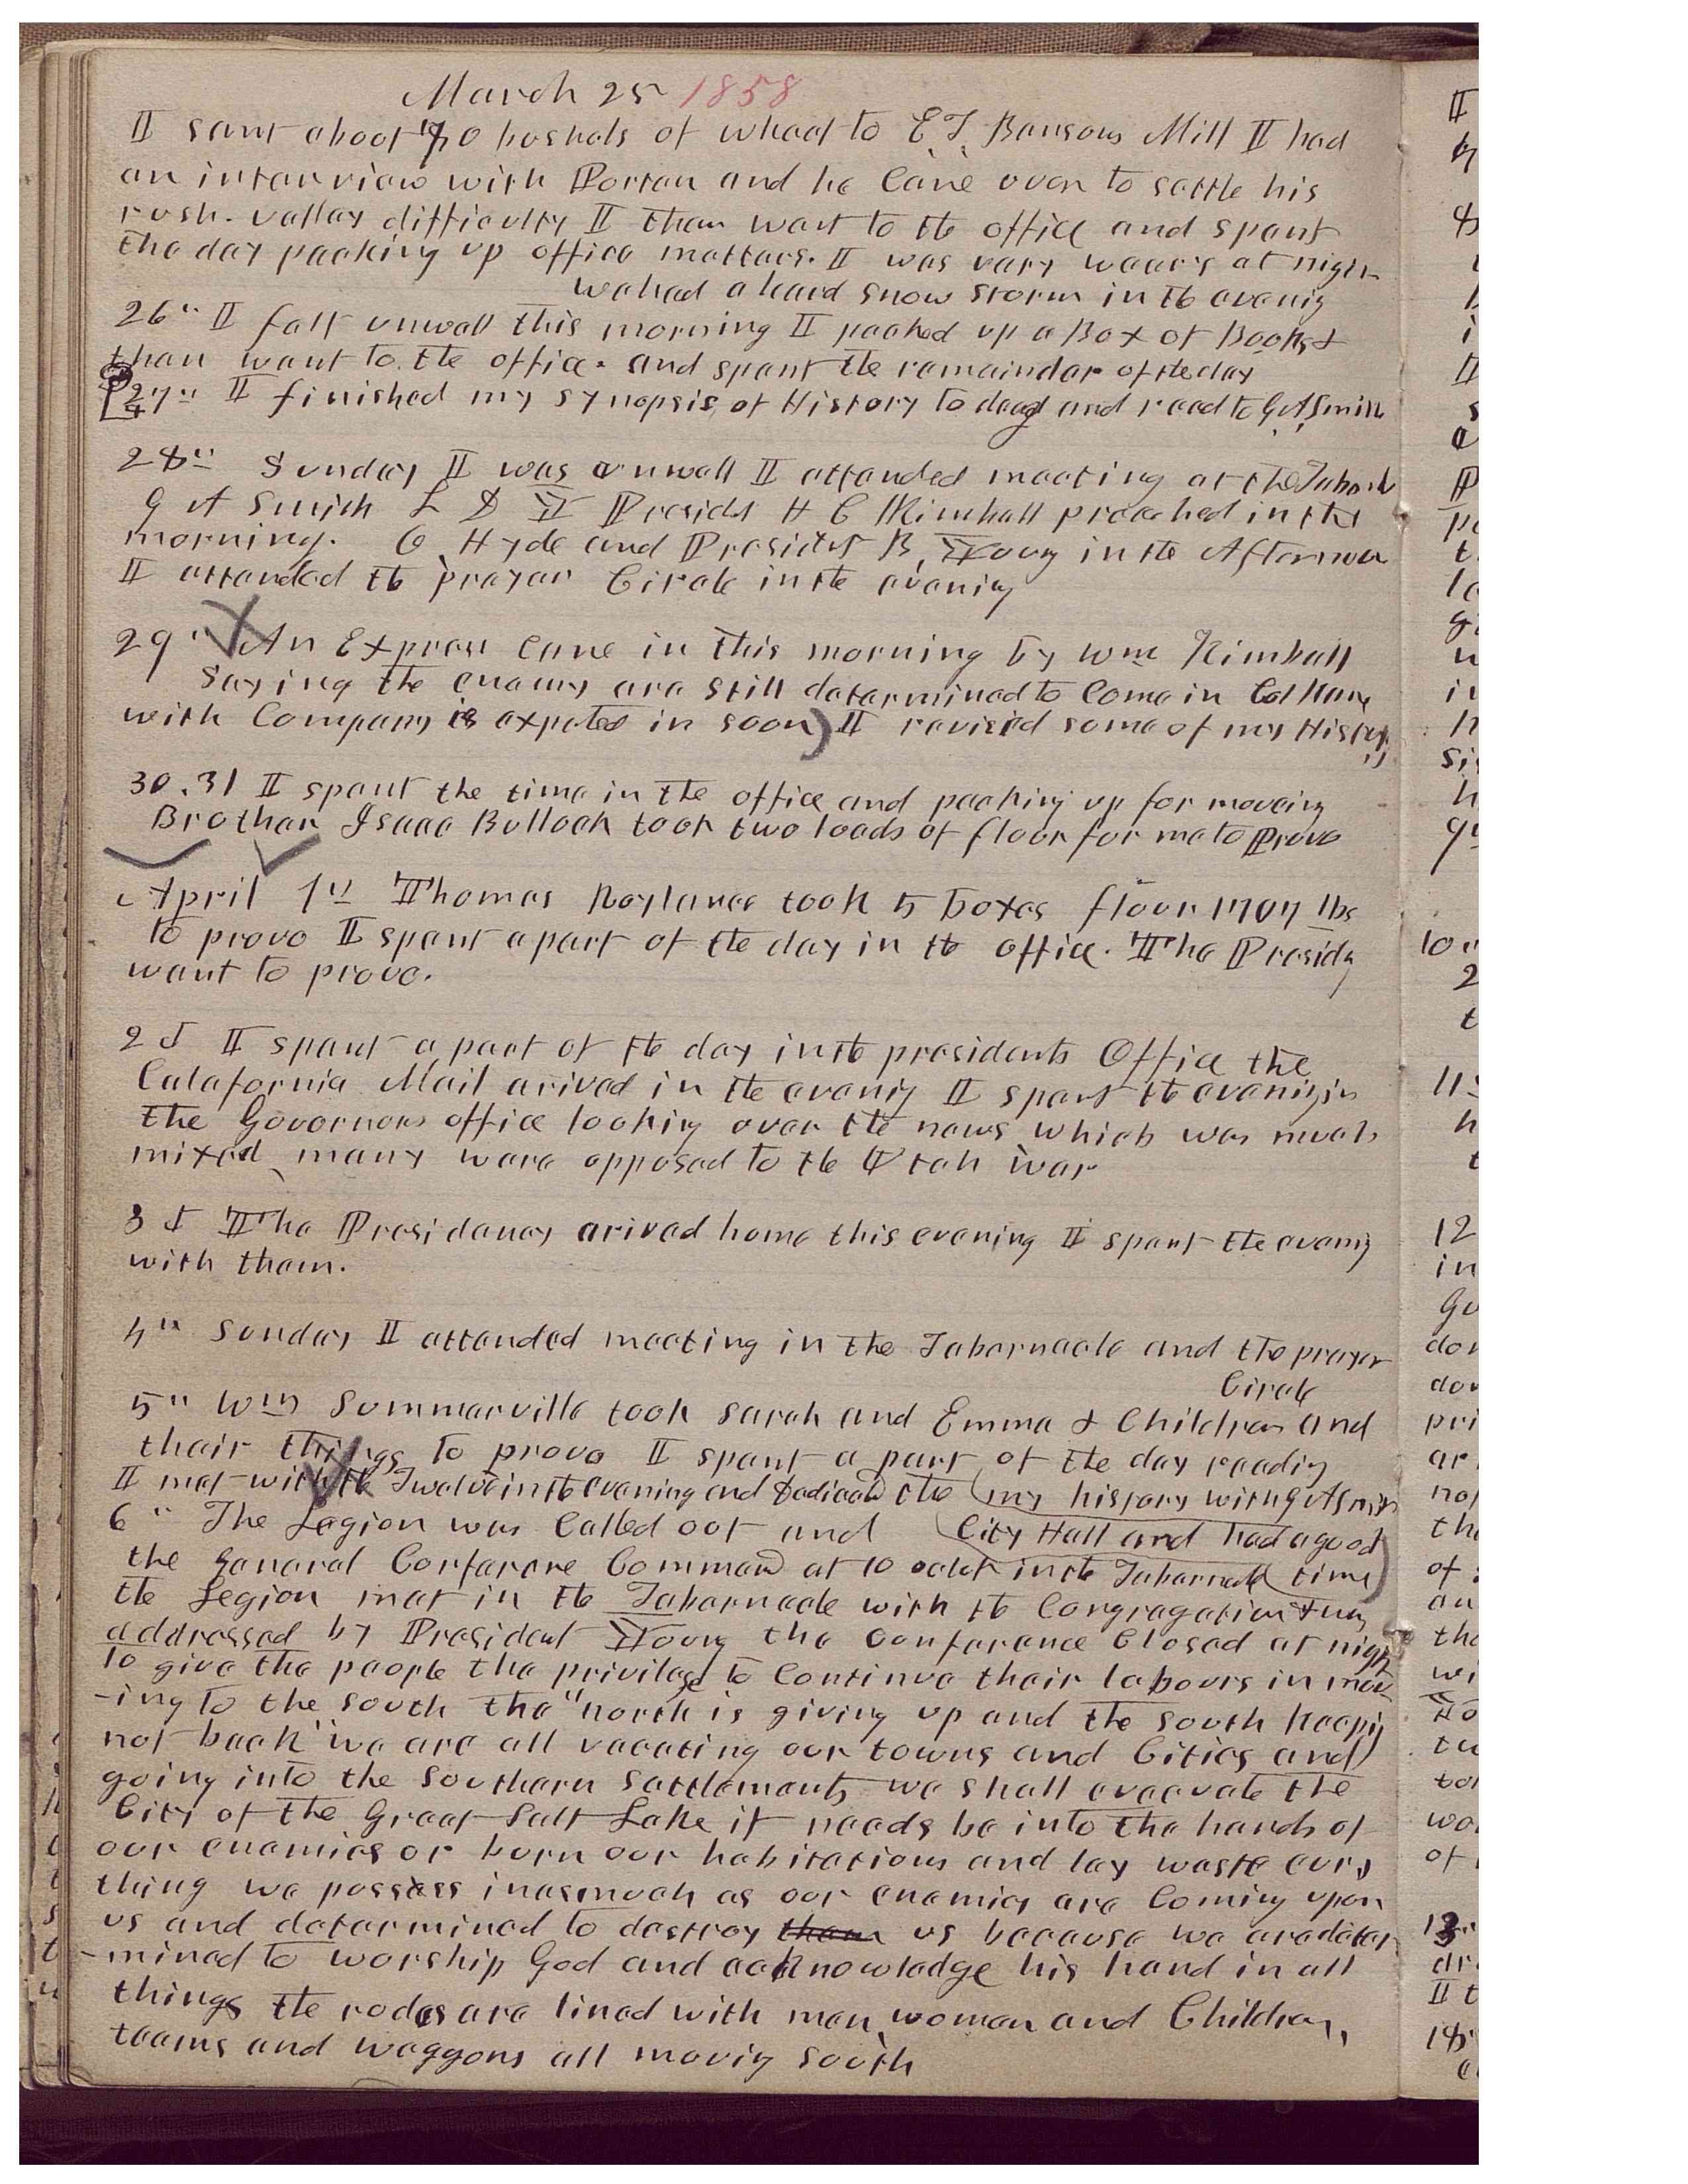 March 25 1858
I sent about 70 bushels of wheat to E. T. Bensons Mill I had
an interview with Porter and he came over to settle his
rush. valley difficulty I then went to the office and spent
the day packing up office matters. I was very weary at nigh
we had a heard snow storm in the evenig
26" I felt unwell this morning I packed up a Box of Books &
then went to the office. and spent the remainder of the day
27" I finished my synopsis of History to day and read to G. A. Smith
28" Sunday I was unwell I attended meeting at the Tabenl
G A Smith L D Y Presidt H C Kimball preached in the
morning. O. Hyde and Presidet B, Young in the Afternon
I attended the prayer Circle in the evening
29" An Express came in this morning by Wm Kimball
saying the enemy are still determined to Come in Col Kane
with Company is expeted in soon) I revised some of my History
30. 31 I spent the time in the office and packing up for moveing
Brother Isaac Bullock took two loads of flour for me to Provo
April 1st Thomas Roylance took 5 boxes flour 1707 lbs
to provo I spent a part of the day in the office. The Presidy
went to provo.
2d I spent a part of the day in the presidents Office the
Calafornia Mail arived in the evenig I spent the evenig in
the Governors office looking over the news which was much
mixed, many were opposed to the Utah war
3d The Presidency arived home this evening I spent the evenig
with them.
4th Sunday I attended meeting in the Tabernacle and the prayer
Circle
5" Wm Summerville took Sarah and Emma & Children and
their things to provo I spent a part of the day readig
I met with the Twelve in the evening and dedicated the (my history with G A Smith
6" The Legion was Called out and City Hall and had a good
the general Conference Commend at 10 oclok in the Tabernacle time)
the Legion met in the Tabernacle with the Congregation & was
addressed by President Young the Conference Closed at nigh
to give the people the privilege to Continue their labours in mov
-ing to the south the "north is giving up and the south keepig
not back" we are all vacating our towns and Cities and
going into the Southern Settlements we shall evacuate the
City of the Great Salt Lake if needs be into the hands of
our enemies or burn our habitations and lay waste evry
thing we possess inasmuch as our enemies are Coming upon
us and determined to destroy them us because we are deter
-mined to worship God and acknowledge his hand in all
things the rodes are lined with men, women and Children,
teams and waggons all movig south